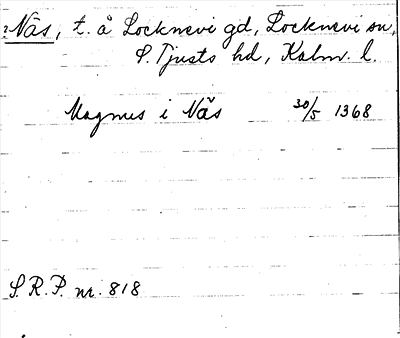 Näs, t. å Locknevi gd, Locknevi sn,
S. Tjusts hd, Kalm. l.
Magnus i Näs 30/5 1368
S.R.P. nr. 818